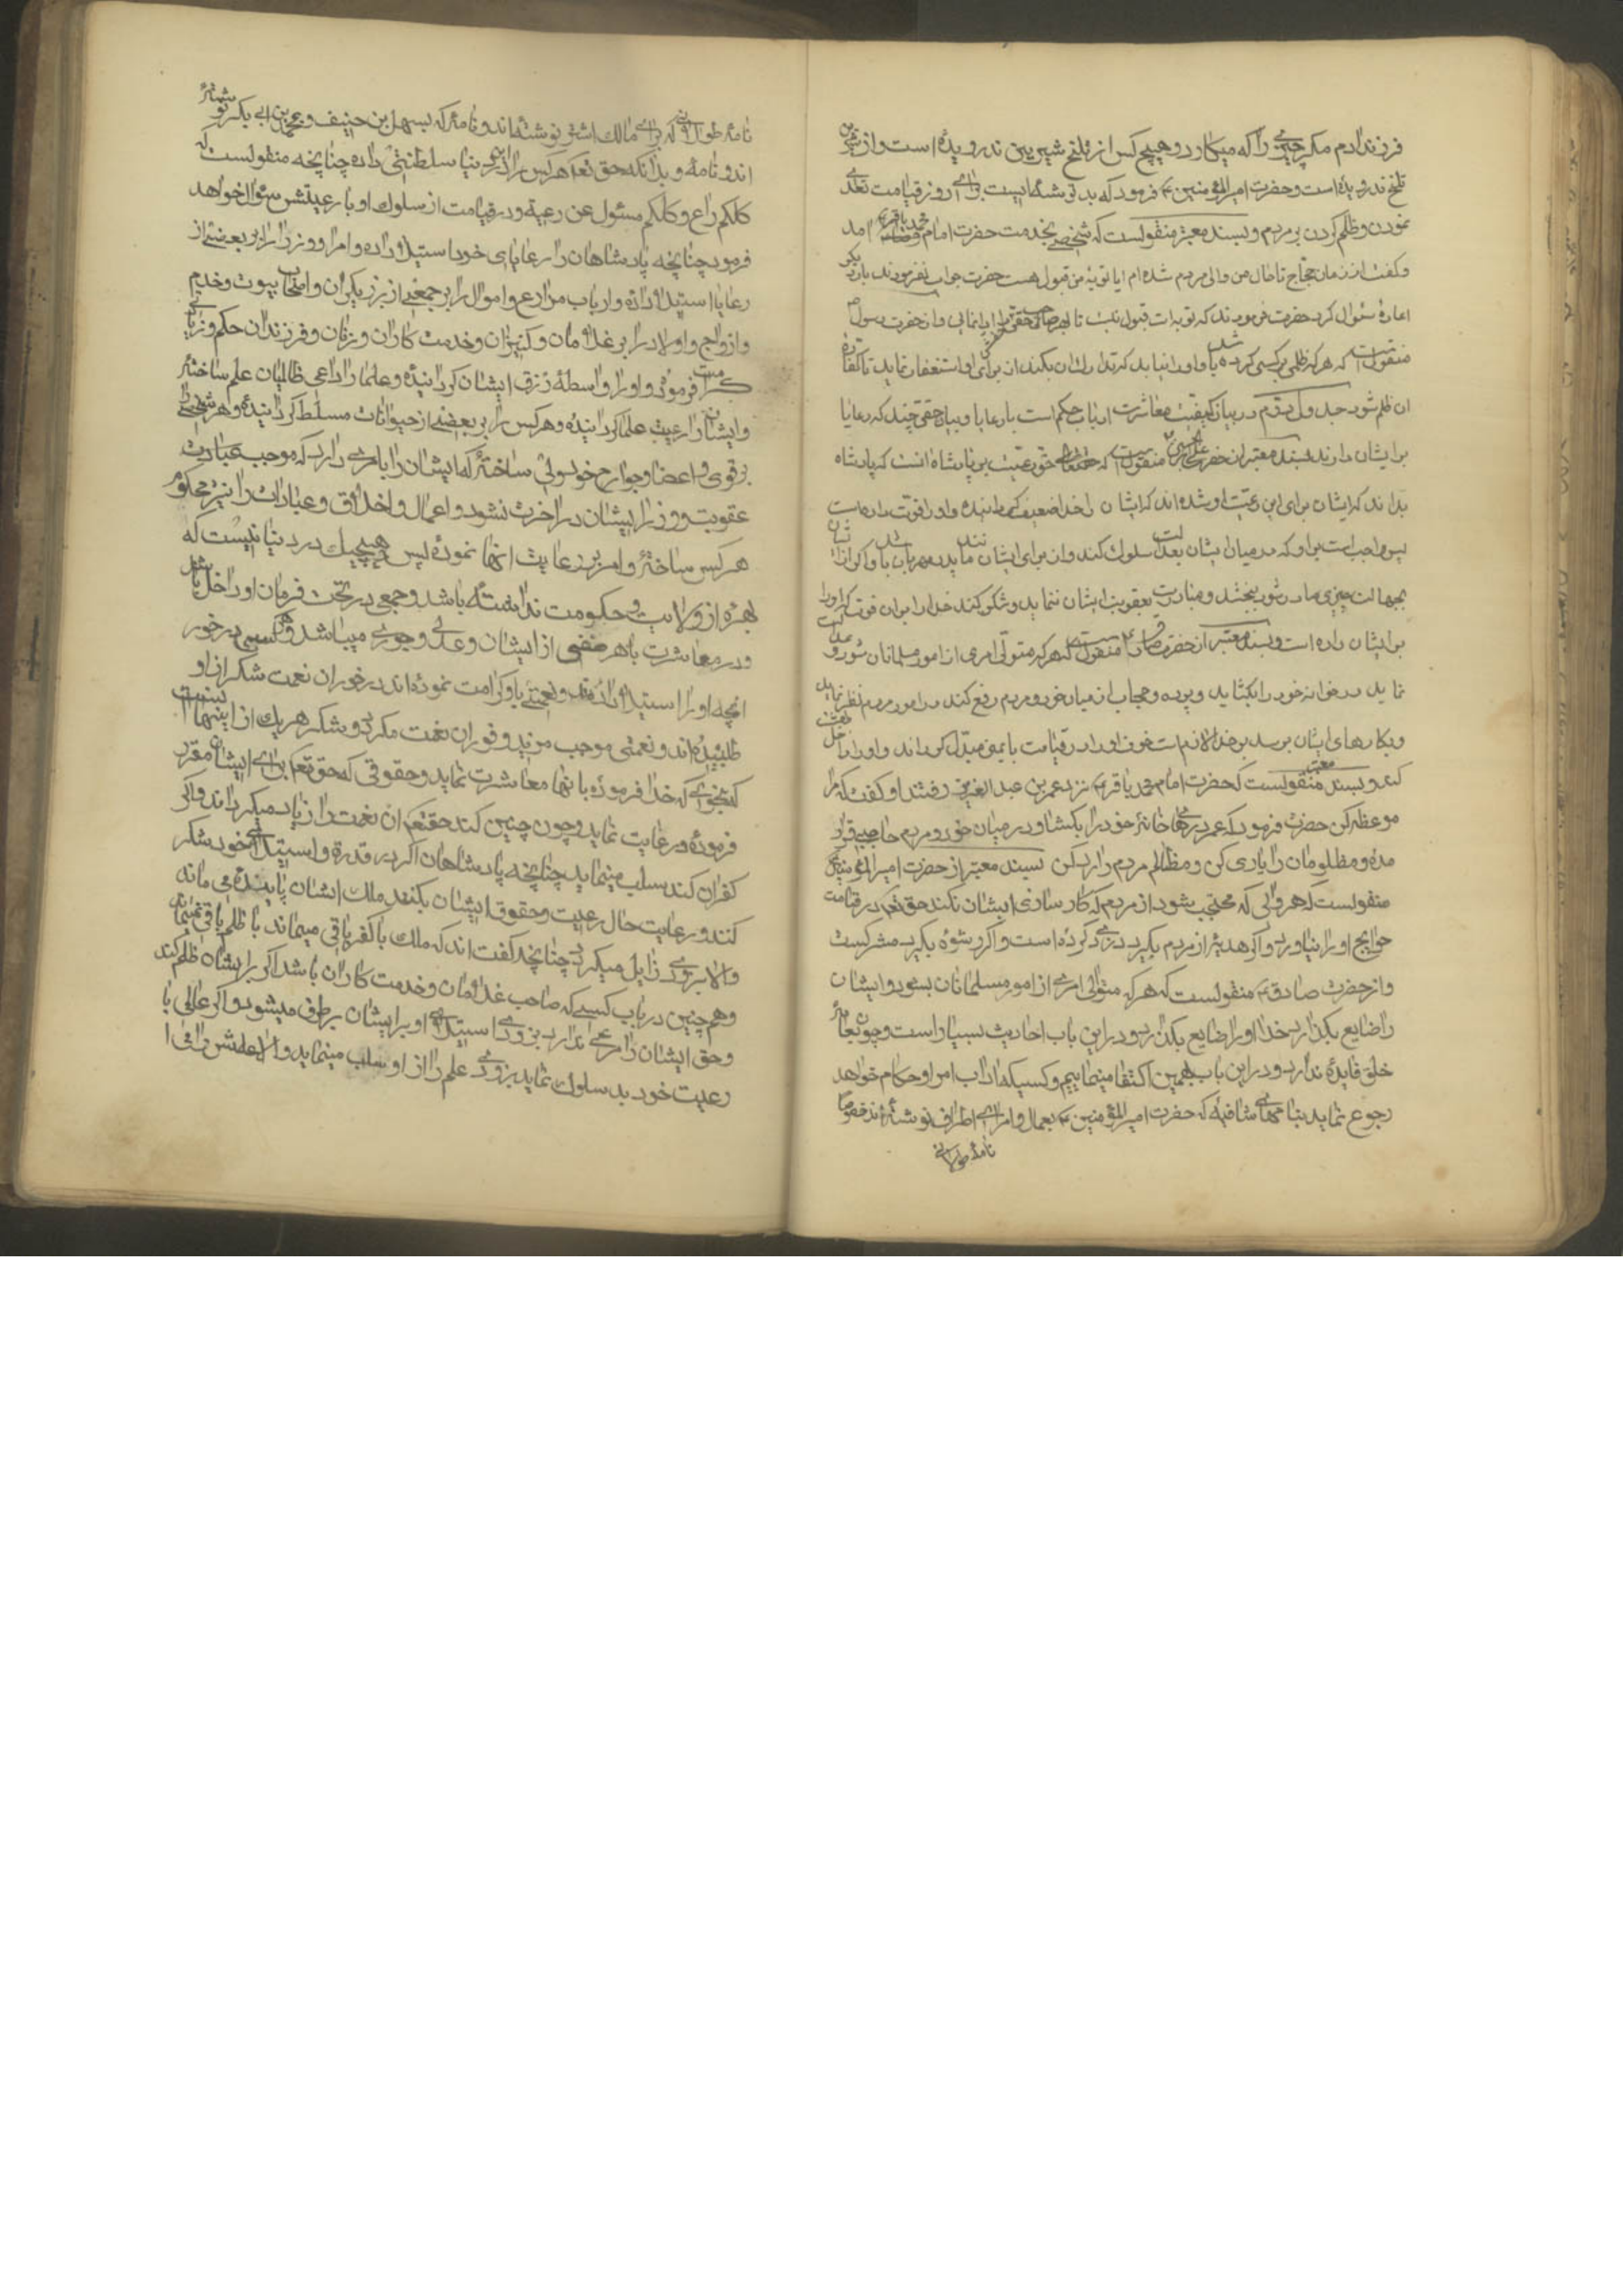 فرزند ادم مکر چیزی را که میکارد و هیچ کس از تلخ شیرین ندرویده است و از شیرین
تلخ ندرویده است و حضرت امیر المؤمنین ع فرمود که بد توشه ایست برای روز قیامت تعدی
نمودن و ظلم کردن بر مردم و بسند معتبر منقولست که شخصی بخدمت حضرت امام محمد باقر ع امد
و کفت از زمان حجاج تا حال من والی مردم شده ام ایا توبه من قبول هست حضرت جواب نفرمودند بار دیکر
اعاده سئوال کرد حضرت فرمودند که توبه ات قبول نیست تا بهر صاحب حقی حق او را برسانی و از حضرت رسول ص
منقولست که هر که ظلمی بر کسی کرده باشد و او را نیابد که تدارک ان بکند از برای او استغفار نماید تا کفاره
ان ظلم شود جدول دوم در بیان کیفیت معاشرت ارباب حکم است با رعایا و بیان حقی چند که رعایا
بر ایشان دارند بسند معتبر از حضرت علی بن الحسین ع منقولست که حق رعیت بر پادشاه انست که پادشاه
بداند که ایشان برای این رعیت او شده اند که ایشان را خدا ضعیف کردانیده و او را قوت داده است
پس واجب است بر او که در میان ایشان بعدالت سلوک کند و از برای ایشان مانند پدر مهربان باشد و اکر از ایشان
بجهالت چیزی صادر شود ببخشد و مبادرت بعقوبت ایشان ننماید و شکر کند خدا را بر ان قوت که او را
بر ایشان داده است و بسند معتبر از حضرت صادق ع منقولست که هر که متولی امری از امور مسلمانان شود و عدالت
نماید و در خانه خود را بکشاید و پرده و حجاب از میان خود و مردم رفع کند و در امور مردم نظر نماید
و بکارهای ایشان برسد بر خدا لازم است خوف او را در قیامت بایمنی مبدل کرداند و او را داخل بهشت
کند و بسند معتبر منقولست که حضرت امام محمد باقر ع نزد عمر بن عبد العزیز رفتند او کفت که مرا
موعظه کن حضرت فرمود که ای عمر درهای خانهٔ خود را بکشا و در میان خود و مردم حاجب قرار
مده و مظلومان را یاری کن و مظالم مردم را رد کن بسند معتبر از حضرت امیر المؤمنین ع
منقولست که هر والی که محتجب شود از مردم که کار سازی ایشان نکند حق تعالی در قیامت
حوایج او را نیاورد و اکر هدیه از مردم بکیرد دزدی کرده است و اکر رشوه بکیرد مشرکست
و از حضرت صادق ع منقولست که هر که متولی امری از امور مسلمانان بشود و ایشان
را ضایع بکذارد خدا او را ضایع بکذارد و در این باب احادیث بسیار است و چون بعامهٔ
خلق فایده ندارد و در این باب بهمین اکتفا مینماییم و کسیکه اداب امرا و حکام خواهد
رجوع نماید بنامهای شافیه که حضرت امیر المؤمنین ع بعمال و امرای اطراف نوشته اند خصوصا
نامهٔ طولانی
نامهٔ طولانی که برای مالک اشتر نوشته اند و نامهٔ که بسهل بن حنیف و محمد بن ابی بکر نوشته
اند و نامه و بدانکه حق تعالی هر کس را در دنیا سلطنتی داده چنانچه منقولست که
کلکم راع و کلکم مسئول عن رعیته و در قیامت از سلوک او با رعیتش سؤال خواهد
فرمود چنانچه پادشاهان را بر رعایای خود استیلا داده و امرا و وزرا را بر بعضی از
رعایا استیلا داده و ارباب مزارع و اموال را بر جمعی از برزیکران و اصحاب بیوت و خدم
و ازواج و اولاد را بر غلامان و کنیزان و خدمت کاران و زنان و فرزندان حکم و زیادتی
کرامت فرموده و او را واسطهٔ رزق ایشان کردانیده و علما را داعی طالبان علم ساخته
و ایشان را رعیت علما کردانیده و هر کس را بر بعضی از حیوانات مسلط کردانیده و هر شخصی را
بر قوی و اعضا و جوارح خود والی ساخته که ایشان را بامری دارد که موجب عبادت
عقوبت و وزر ایشان در اخرت نشود و اعمال و اخلاق و عبادات را نیز محکوم
هر کس ساخته و امر برعایت انها نموده پس هیچیک در دنیا نیست که
بهره از ولایت و حکومت نداشته باشد و جمعی در تحت فرمان او داخل باشند
و در معاشرت با هر صنفی از ایشان و عدلی و جوری میباشد و هر کسی در خور
انچه او را استیلا داده اند و نعمتی باو کرامت نموده اند در خور ان نعمت شکر از او
طلبیده اند و نعمتی موجب مزید و فور ان نعمت مکرر و شکر هر یک از اینها انست
که بنحوی که خدا فرموده با انها معاشرت نماید و حقوقی که حق تعالی برای ایشان مقرر
فرموده رعایت نماید و چون چنین کند حقتعالی ان نعمت را زیاد میکرداند و اکر
کفران کند سلب مینماید چنانچه پادشاهان اکر در قدرة و استیلای خود شکر
کنند و رعایت حال رعیت و حقوق ایشان بکنند ملک ایشان پاینده می ماند
و الا بزودی زایل میکردد چنانچه کفته اند که ملک با کفر باقی میماند با ظلم باقی نمیماند
و همچنین در باب کسی که صاحب غلامان و خدمت کاران باشد اکر بر ایشان ظلم کند
و حق ایشان را مرعی ندارد بزودی استیلای او بر ایشان بر طرف میشود و اکر عالمی با
رعیت خود بد سلوک نماید بزودی علم را از او سلب مینماید